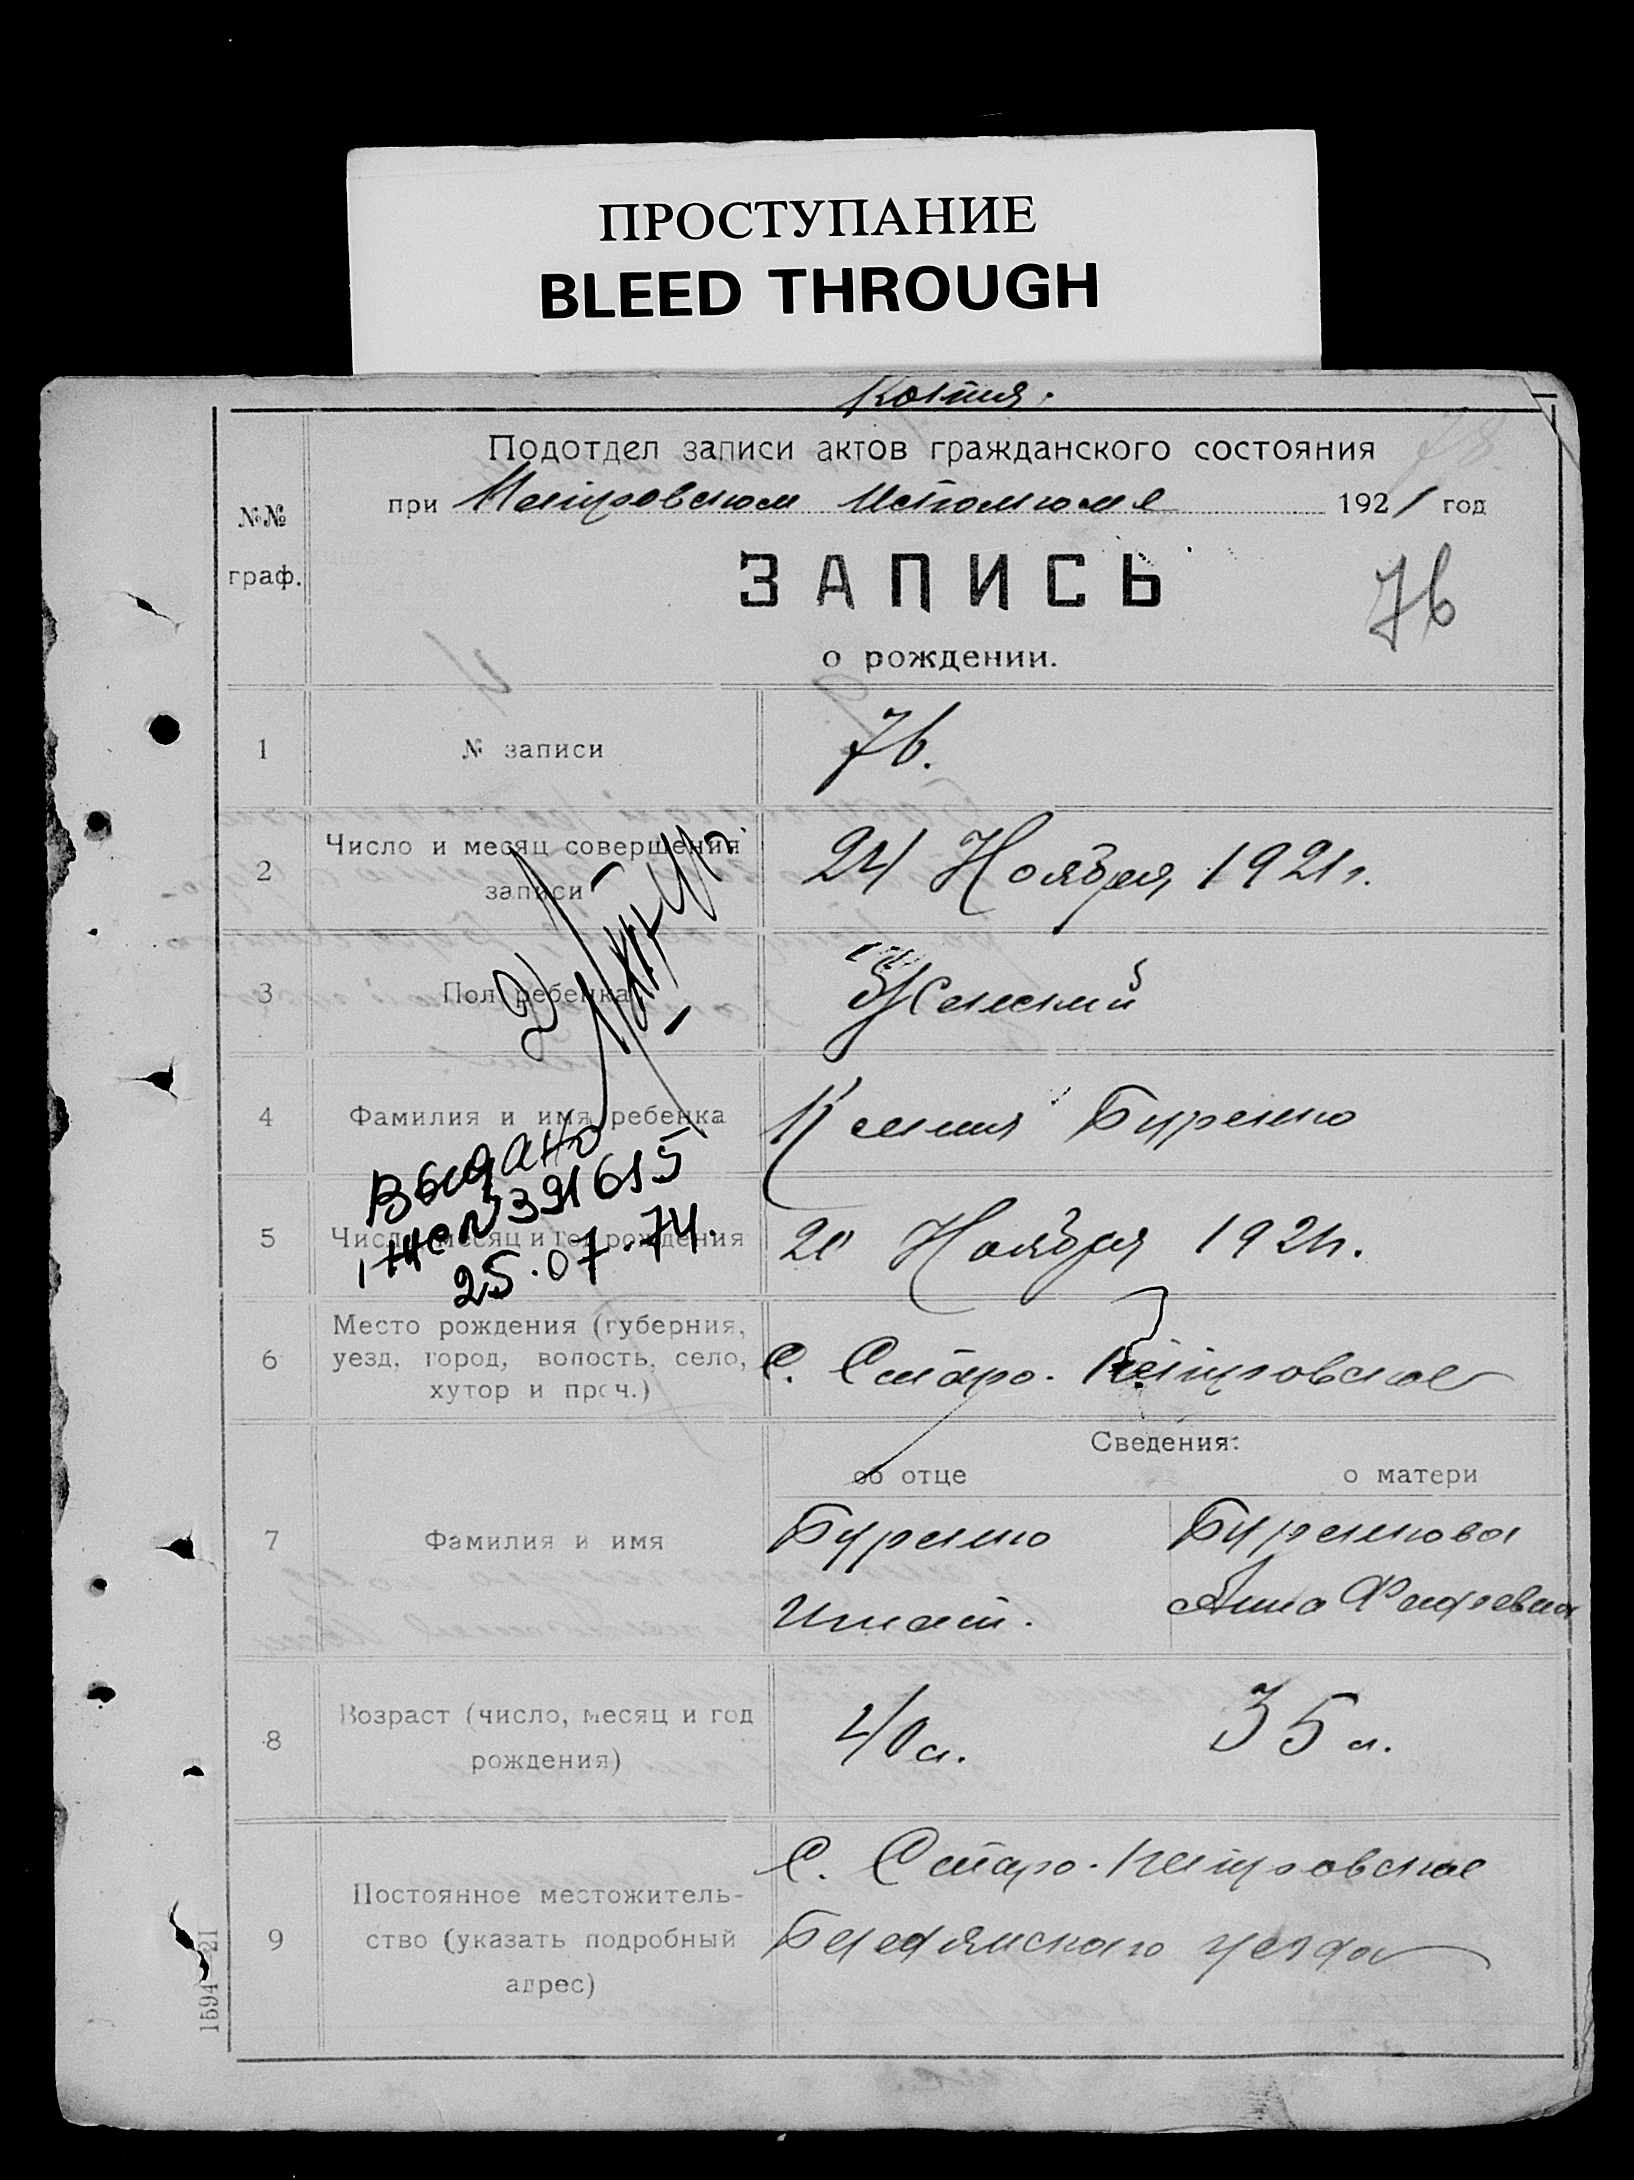 ПРОСТУПАНИЕ
BLEED THROUGH
Копия.
Подотдел записи актов гражданского состояния
при Петровском Исполкоме 1921 год
№№
граф.
ЗАПИСЬ
76
о рождении.
1 № записи 76.
2 Число и месяц совершения записи 24 Ноября 1921 г.
3 Пол ребенка Женский
4 Фамилия и имя ребенка Ксения Буренко
Выдано
391615
25.07.74.
5 Число, месяц и год рождения 20 Ноября 1921 г.
6 Место рождения (губерния,
уезд, город, волость, село,
хутор и проч.)
С. Старо-Петровское
Сведения:
об отце о матери
7 Фамилия и имя
Буренко Буренкова
Игнат. Анна Фадеевна
8 Возраст (число, месяц и год
рождения)
40 л. 35 л.
9 Постоянное местожитель-
ство (указать подробный
адрес)
С. Старо-Петровское
Бердянского уезда
1594—21